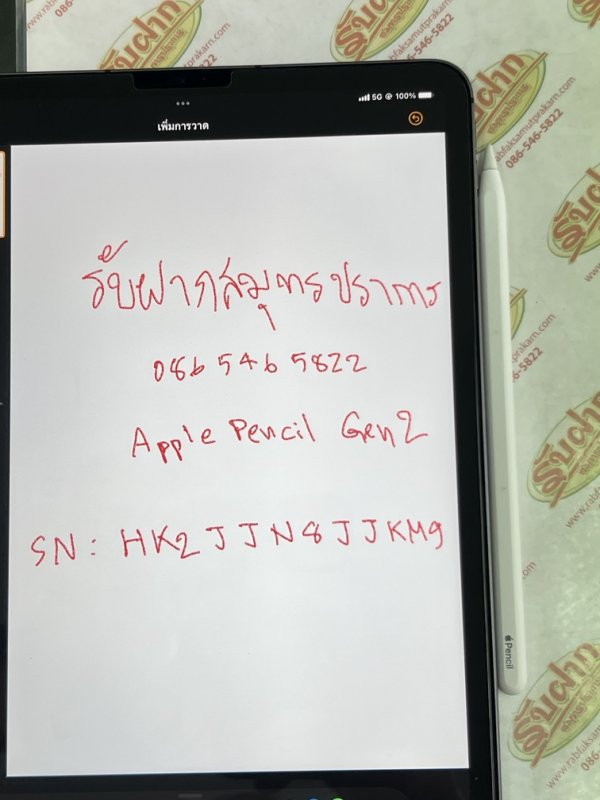 www.rabfaksamutprakarn.com
086-546-5822
รับฝาก
สมุทรปราการ
5G 100%
เพิ่มการวาด
รับฝากสมุทรปราการ
086 546 5822
Apple Pencil Gen2
SN: HK2JJN8JJKM9
Pencil
รับฝาก
สมุทรปราการ
www.rabfaksamutprakarn.com
086-546-5822